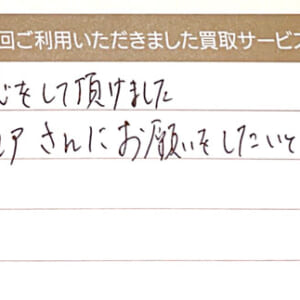 回ご利用いただきました買取サービス
をして頂けました
アさんにお願いをしたいと